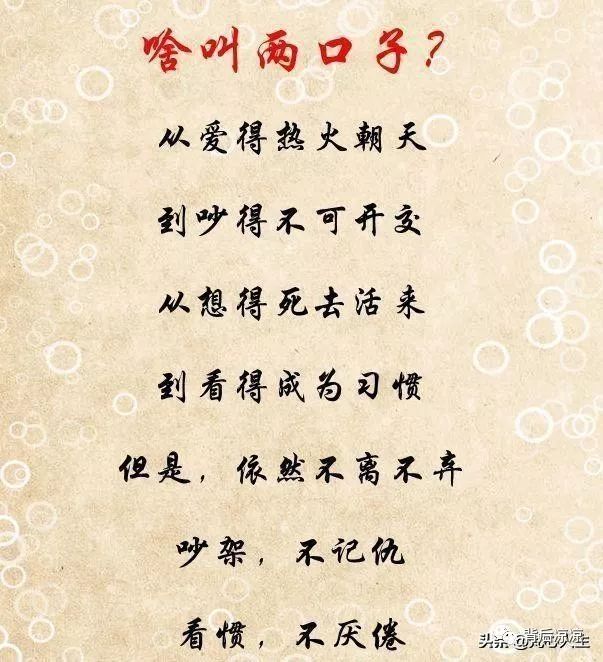 啥叫两口子？
从爱得热火朝天
到吵得不可开交
从想得死去活来
到看得成为习惯
但是，依然不离不弃
吵架，不记仇
看惯，不厌倦
头条